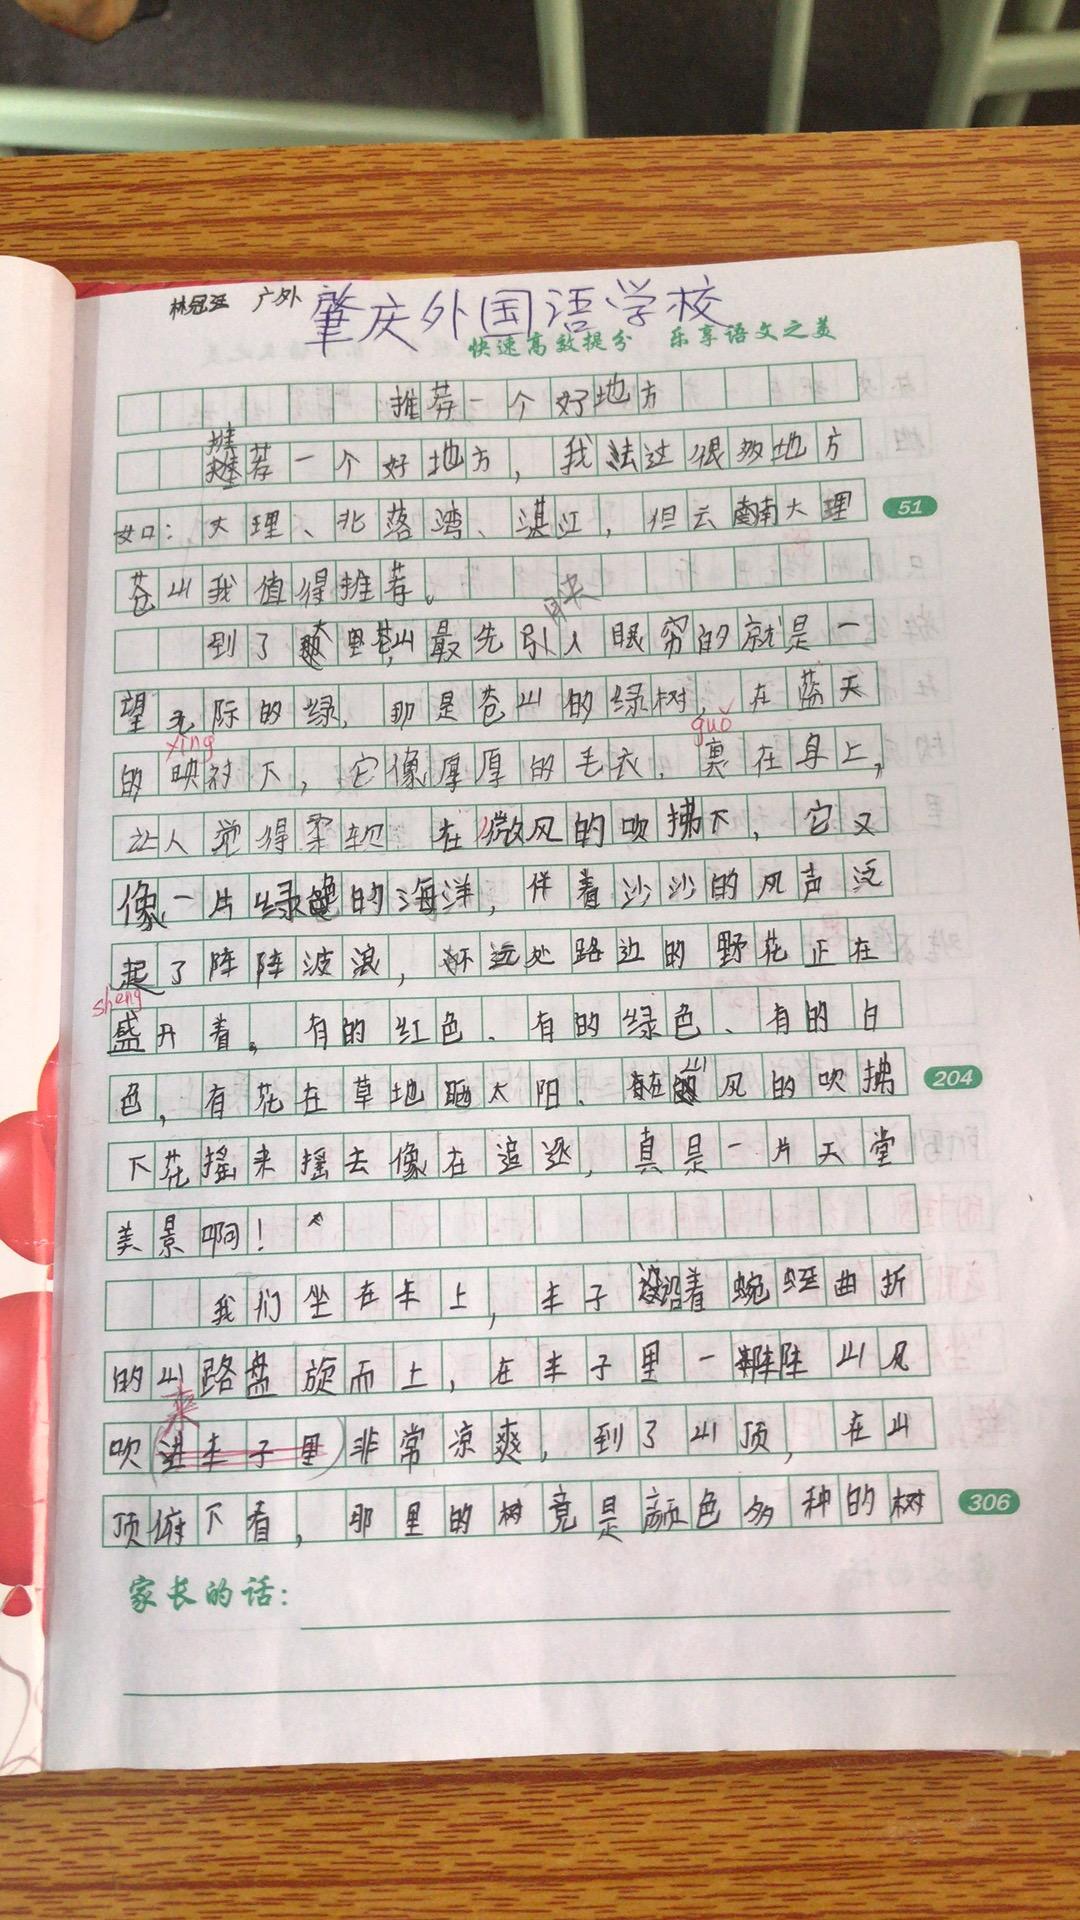 林冠 广外
肇庆外国语学校
快速高效提分 乐享语文之美
推荐一个好地方
推
荐一个好地方，我去过很多地方
如：大理、北落湾、湛江，但云南大理 51
苍山我值得推荐。
到了大里苍山最先引人眼穷的就是一
望无际的绿，那是苍山的绿树，在蓝天
xing guǒ
的映衬下，它像厚厚的毛衣，裹在身上，
让人觉得柔软 在微风的吹拂下，它又
像一片绿色的海洋，伴着沙沙的风声泛
起了阵阵波浪，远处路边的野花正在
sheng
盛开着。有的红色、有的绿色、有的白
色，有花在草地晒太阳、在山风的吹拂 204
下花摇来摇去像在追逐，真是一片天堂
美景啊！
我们坐在车上，车子沿着蜿蜒曲折
的山路盘旋而上，在车子里一阵阵山风
来
吹(进车子里)非常凉爽，到了山顶，在山
顶俯下看，那里的树竟是颜色多种的树 306
家长的话：